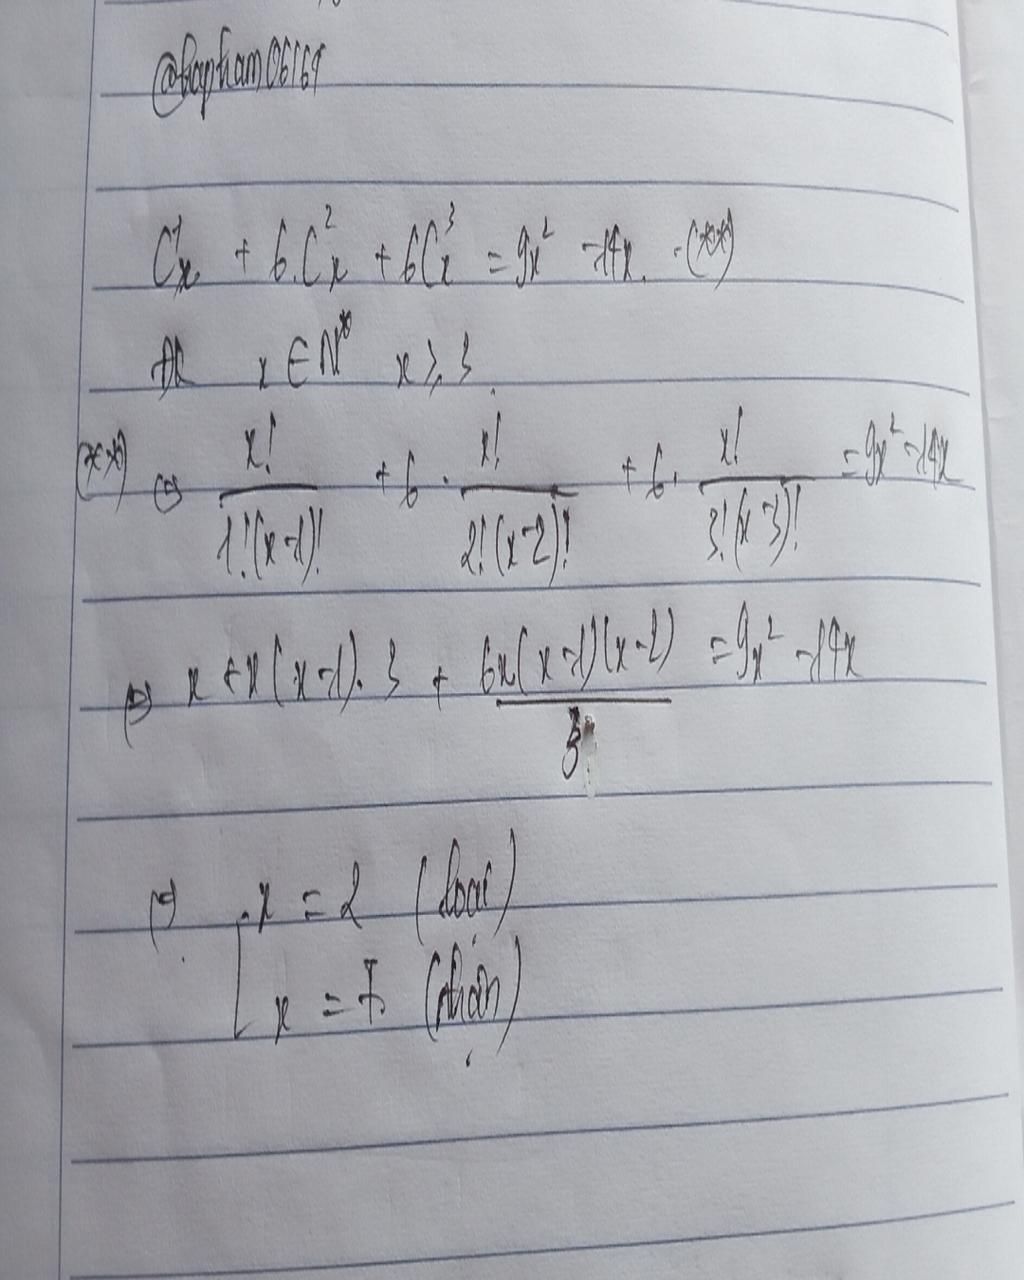 C¹ₓ + 6.C²ₓ + 6C³ₓ = 9x² - 14x. (**)
ĐK x ∈ N* x ≥ 3
(**) ⇔ x!/1!(x-1)! + 6 . x!/2!(x-2)! + 6. x!/3!(x-3)! = 9x² - 14x
⇔ x + x(x-1). 3 + 6x(x-1)(x-2)/3! = 9x² - 14x
⇔ [ x = 2 (loại)
x = 7 (nhận)